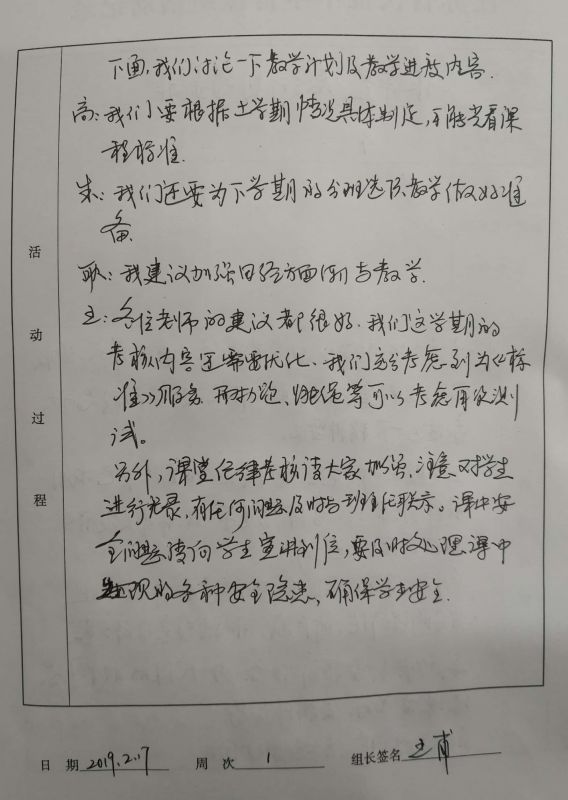 下面,我们讨论一下教学计划及教学进度内容.
高:我们要根据上学期情况具体制定,不能光看课
程标准.
朱:我们还要为下学期的分班选项教学做好准
备.
耿:我建议加强田径方面 与教学.
王:各位老师的建议都很好.我们这学期的
考核内容还需要优化、我们充分考虑到为《标
准》服务. 跑、跳绳等可以考虑再次测
试。
另外,课堂纪律考核请大家加强,注意对学生
进行记录,有任何问题及时与班主任联系。课中安
全问题请向学生宣讲到位,要及时处理课中
出现的各种安全隐患,确保学生安全.
活动过程
日 期 2019.2.17 周 次 1 组长签名 王甫